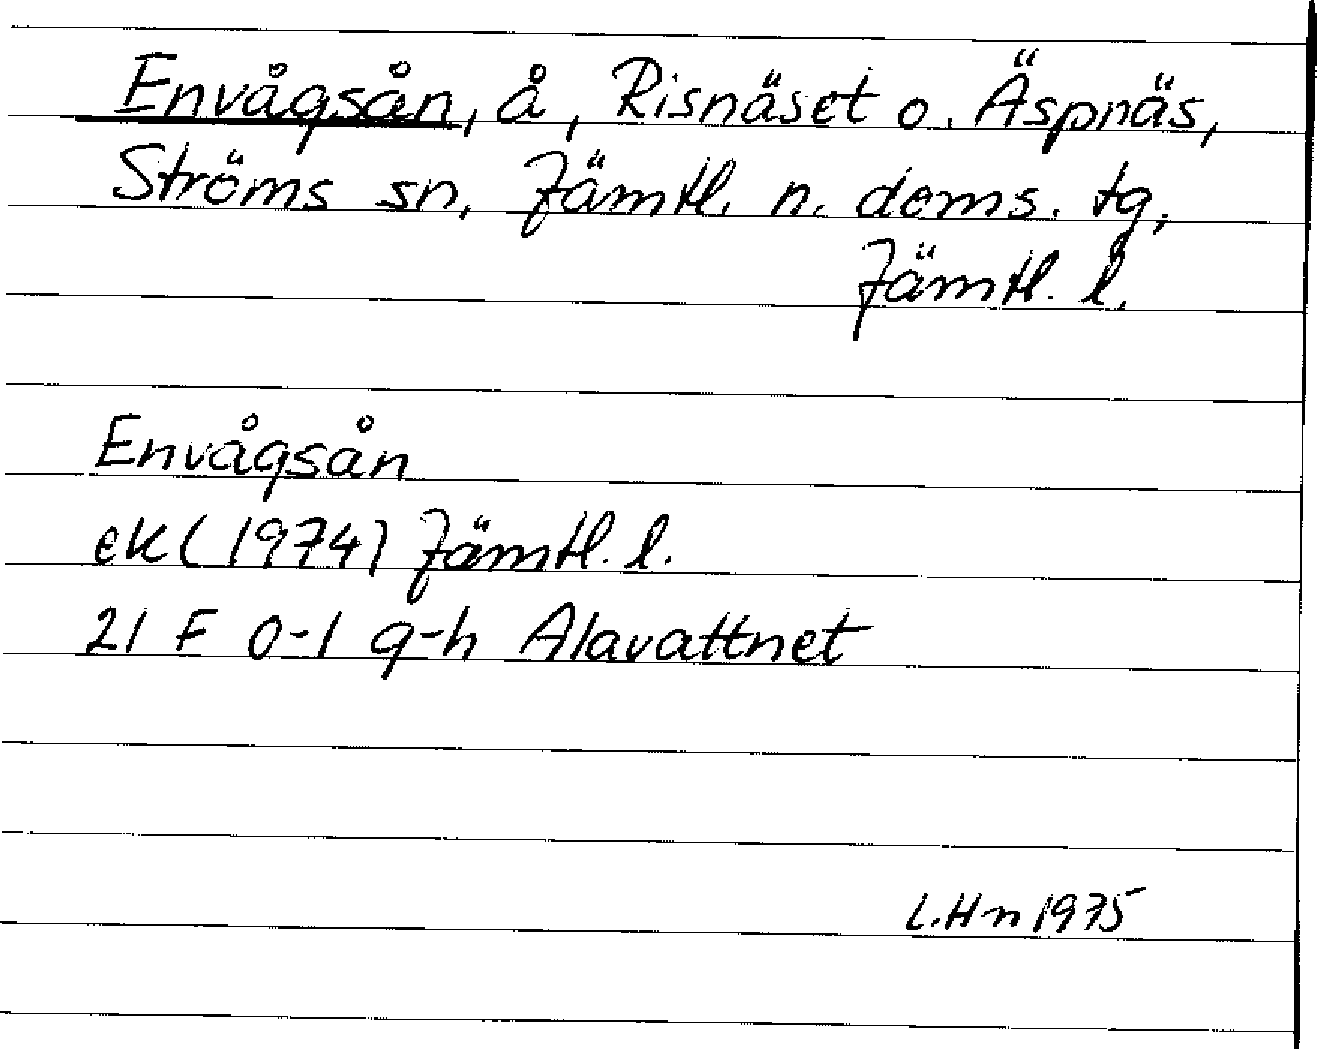 Envågsån, å, Risnäset o. Äspnäs,
Ströms sn, Jämtl. n. doms. tg,
Jämtl. l.
Envågsån
ek (1974) Jämtl. l.
21 F 0-1 g-h Alavattnet
L.Hn 1975